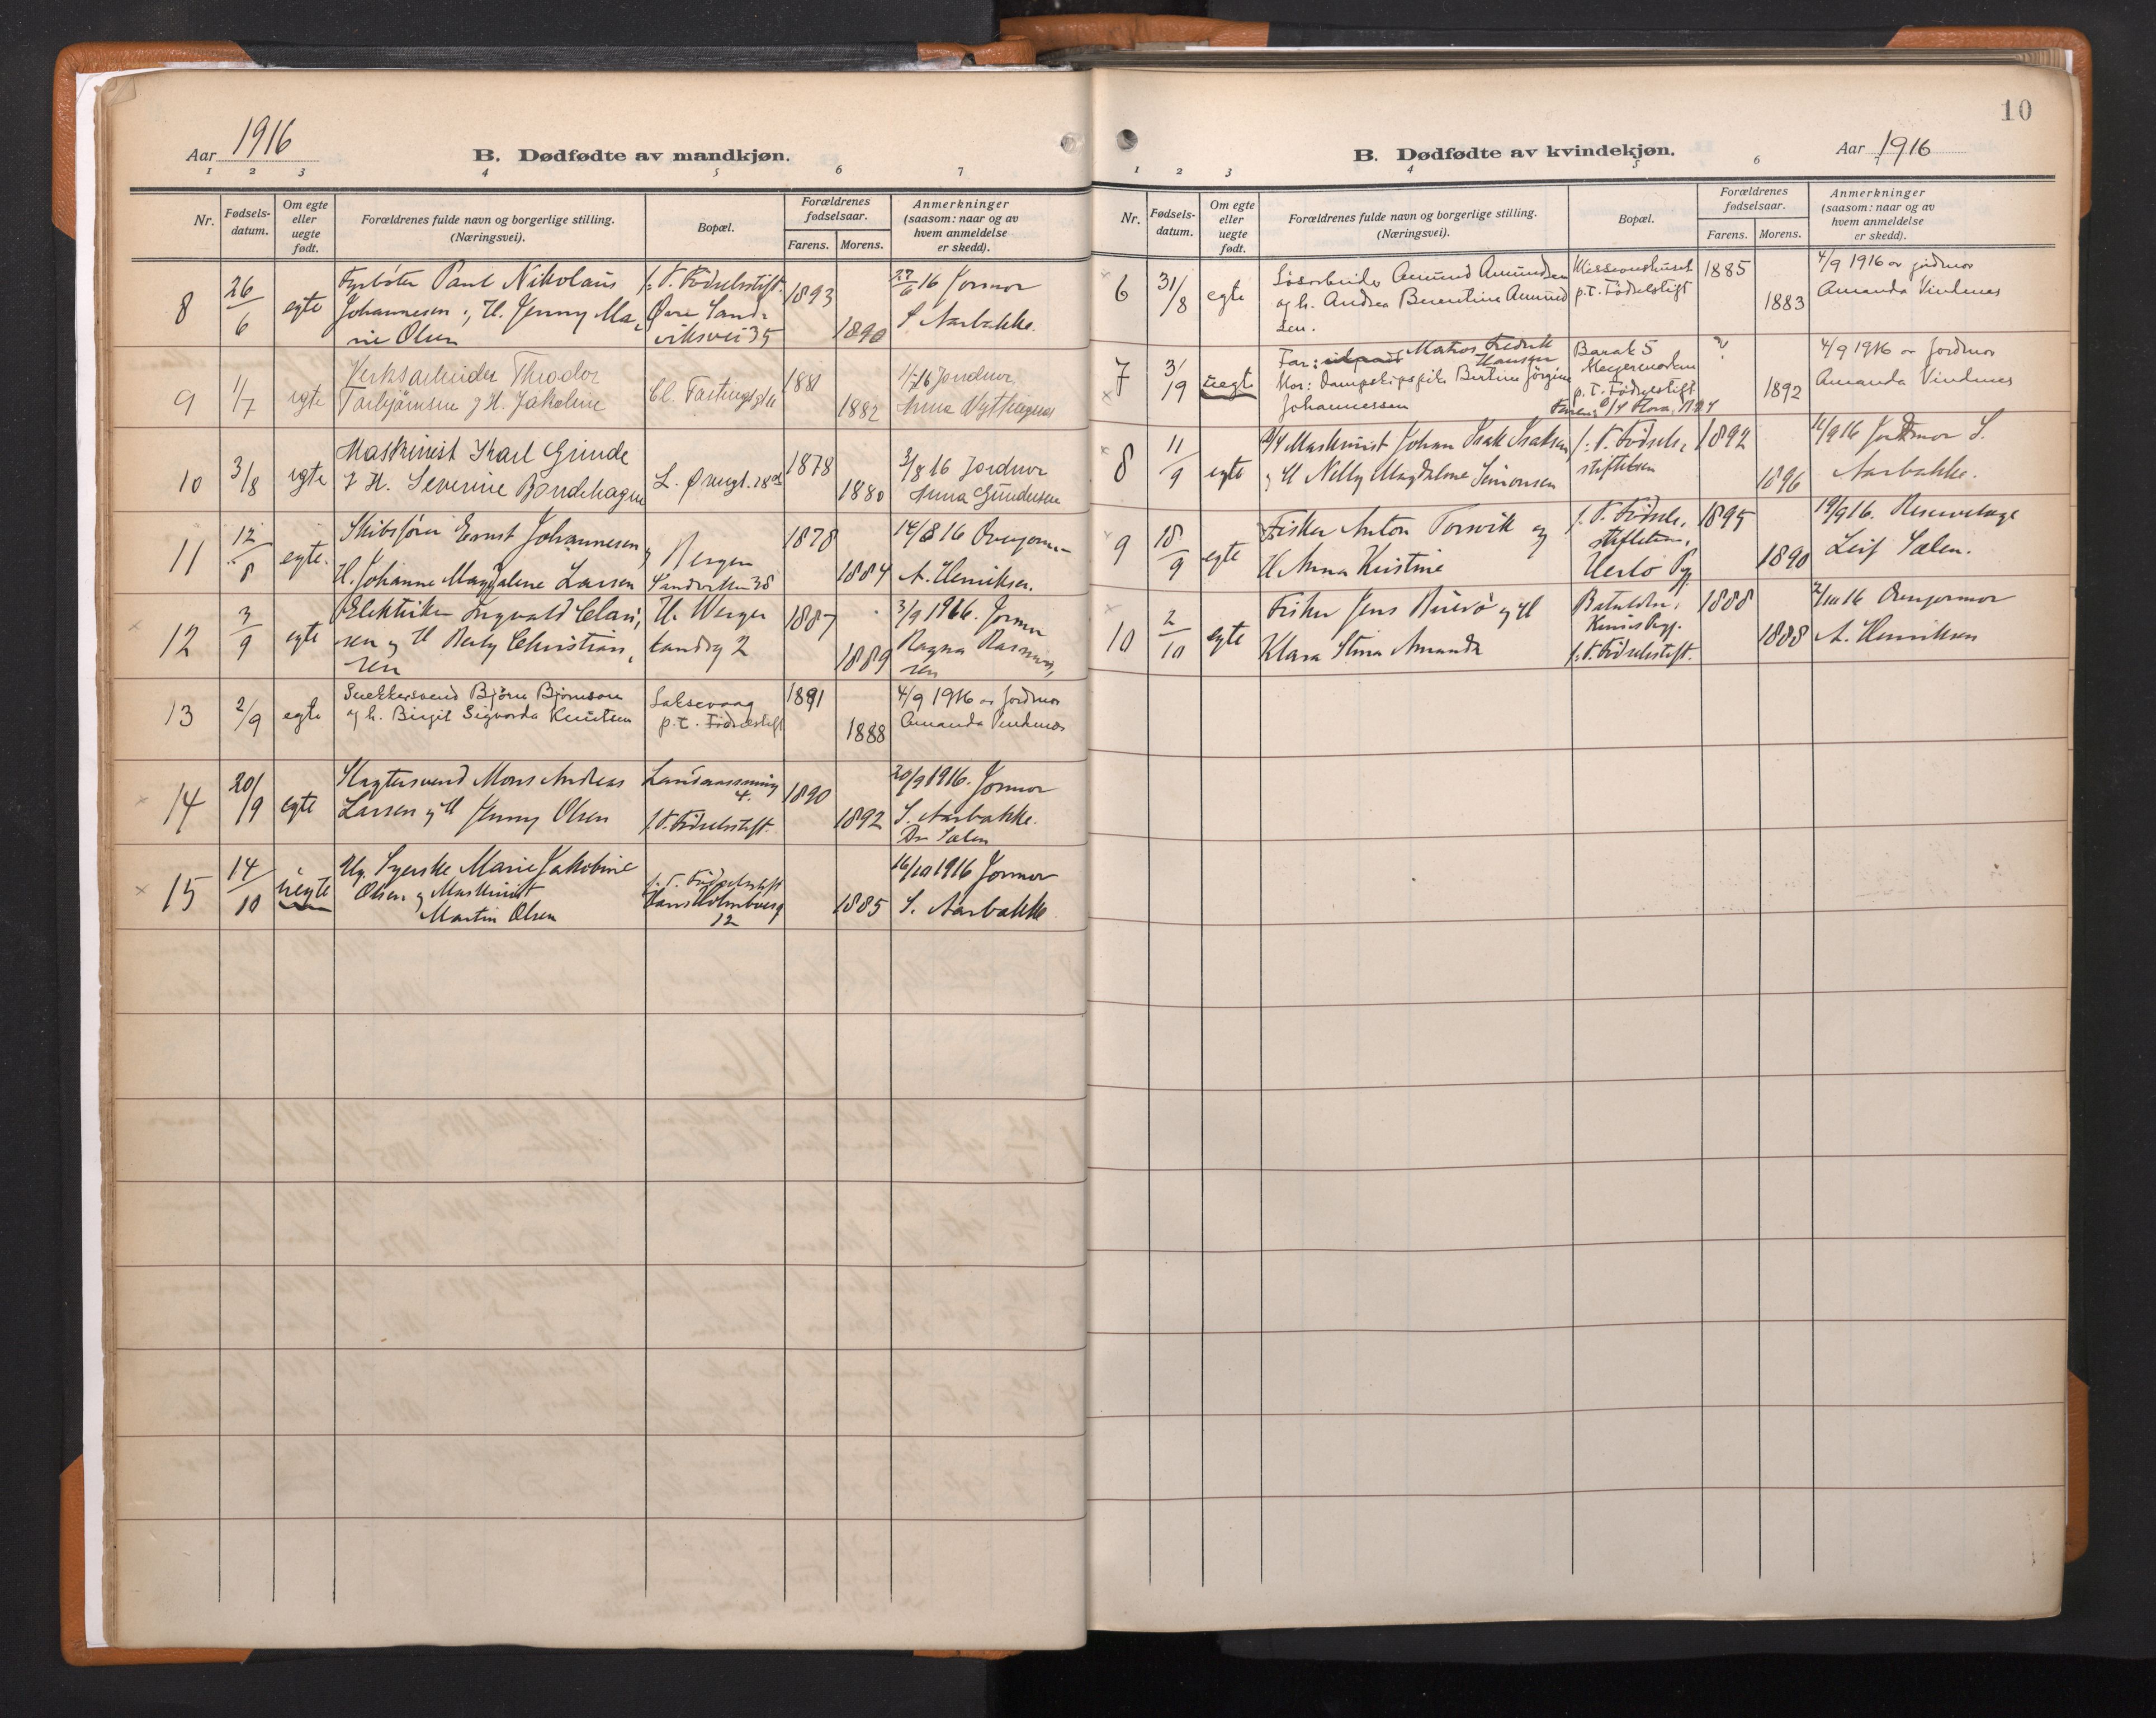 Aar 1916
B. Dødfødte av mandkjøn.
1 2 3 4 5 6 7
Nr.
Fødsels-
datum.
Om egte
eller
uegte
født.
Forældrenes fulde navn og borgerlige stilling.
(Næringsvei).
Bopæl.
Forældrenes
fødselsaar.
Farens. Morens.
Anmerkninger
(saasom: naar og av
hvem anmeldelse
er skedd).
8
26/6
egte
Fyrbøter Paul Nikolaus
Johannesen og H. Jenny Ma-
rie Olsen
p. T. Fødselsstift.
Øvre Sand-
viksvei 35
1893
1890
27/6 16 Jormor
S Aarbakke.
9
1/7
egte
Verksarbeider Theodor
Torbjørnsen og H. Jakobine
1881
1882
1/7 16 Jordmor
Anna
10
3/8
egte
Maskinist Karl Grinde
og H. Severine Bondehagen
1878
1880
3/8 16 Jordmor
Anna Gundersen
11
12/8
egte.
Skibsfører Ernst Johannesen og
H. Johanne Magdalene Larsen
Bergen
Sandviken 38
1878
1884
14/8 16 Overjorm-
A. Henriksen.
12
3/9
egte
Elektriker Ingvald Claus-
sen og H Berly Christian-
sen
H. Werge-
landsg 2
1887
1889
3/9 1916. Jormor
Ragna Rasmus-
sen
13
2/9
egte
Snekkersvend Bjørn Bjørnson
og h. Birgit Sigvarda Knutsen
Laksevaag
p.t. Fødselsstift
1891
1888
4/9 1916 av Jordmor
Amanda Vindenes
14
20/9
egte
Slagtersvend Mons Andreas
Larsen og H Jenny Olsen
4.
p T. Fødselsstift.
1890
1892
20/9 1916. Jormor
S. Aarbakke.
Dr Sælen
15
14/10
uegte
Ug. Syerske Marie Jakobine
Olsen og Maskinist
Martin Olsen
p. T. Fødselsstift
Hans Holmboesg
12
1885
16/10 1916 Jormor
S. Aarbakke
10
B. Dødfødte av kvindekjøn.
Aar 1916
1 2 3 4 5 6 7
Nr.
Fødsels-
datum.
Om egte
eller
uegte
født.
Forældrenes fulde navn og borgerlige stilling.
(Næringsvei).
Bopæl.
Forældrenes
fødselsaar.
Farens. Morens.
Anmerkninger
(saasom: naar og av
hvem anmeldelse
er skedd).
6
31/8
egte
Løsarbeider Amund Amundsen
og h. Andrea Berentine Amund-
sen.
Missionshuset
p.t. Fødselsstift
1885
1883
4/9 1916 av jordmor
Amanda Vindenes
7
3/9
uegte
Far: Matros Fredrik
Hansen
Mor: Dampskipspike Bertine Jørgine
Johannessen
Barak 5
p.t. Fødselsstift
?
1892
4/9 1916 av Jordmor
Amanda Vindenes
8
11/9
egte
Maskinist Johan Isak Isaksen
og H Nelly Magdalene Simonsen
p. T. Fødsels-
stiftelsen
1892
1896
11/9 16 Jordmor S.
Aarbakke.
9
18/9
egte
Fisker Anton Torsvik og
H Anna Kristine
p. T. Fødsels-
stiftelsen,
Herlø Pgj.
1895
1890
19/9 16. Reservelæge
Leif Sælen.
10
2/10
egte
Fisker Jens og H
Klara Stina Amanda
Batalden,
Kinns Pgj.
p. T. Fødselsstift.
1888
1888
2/10 16 Overjormor
A. Henriksen